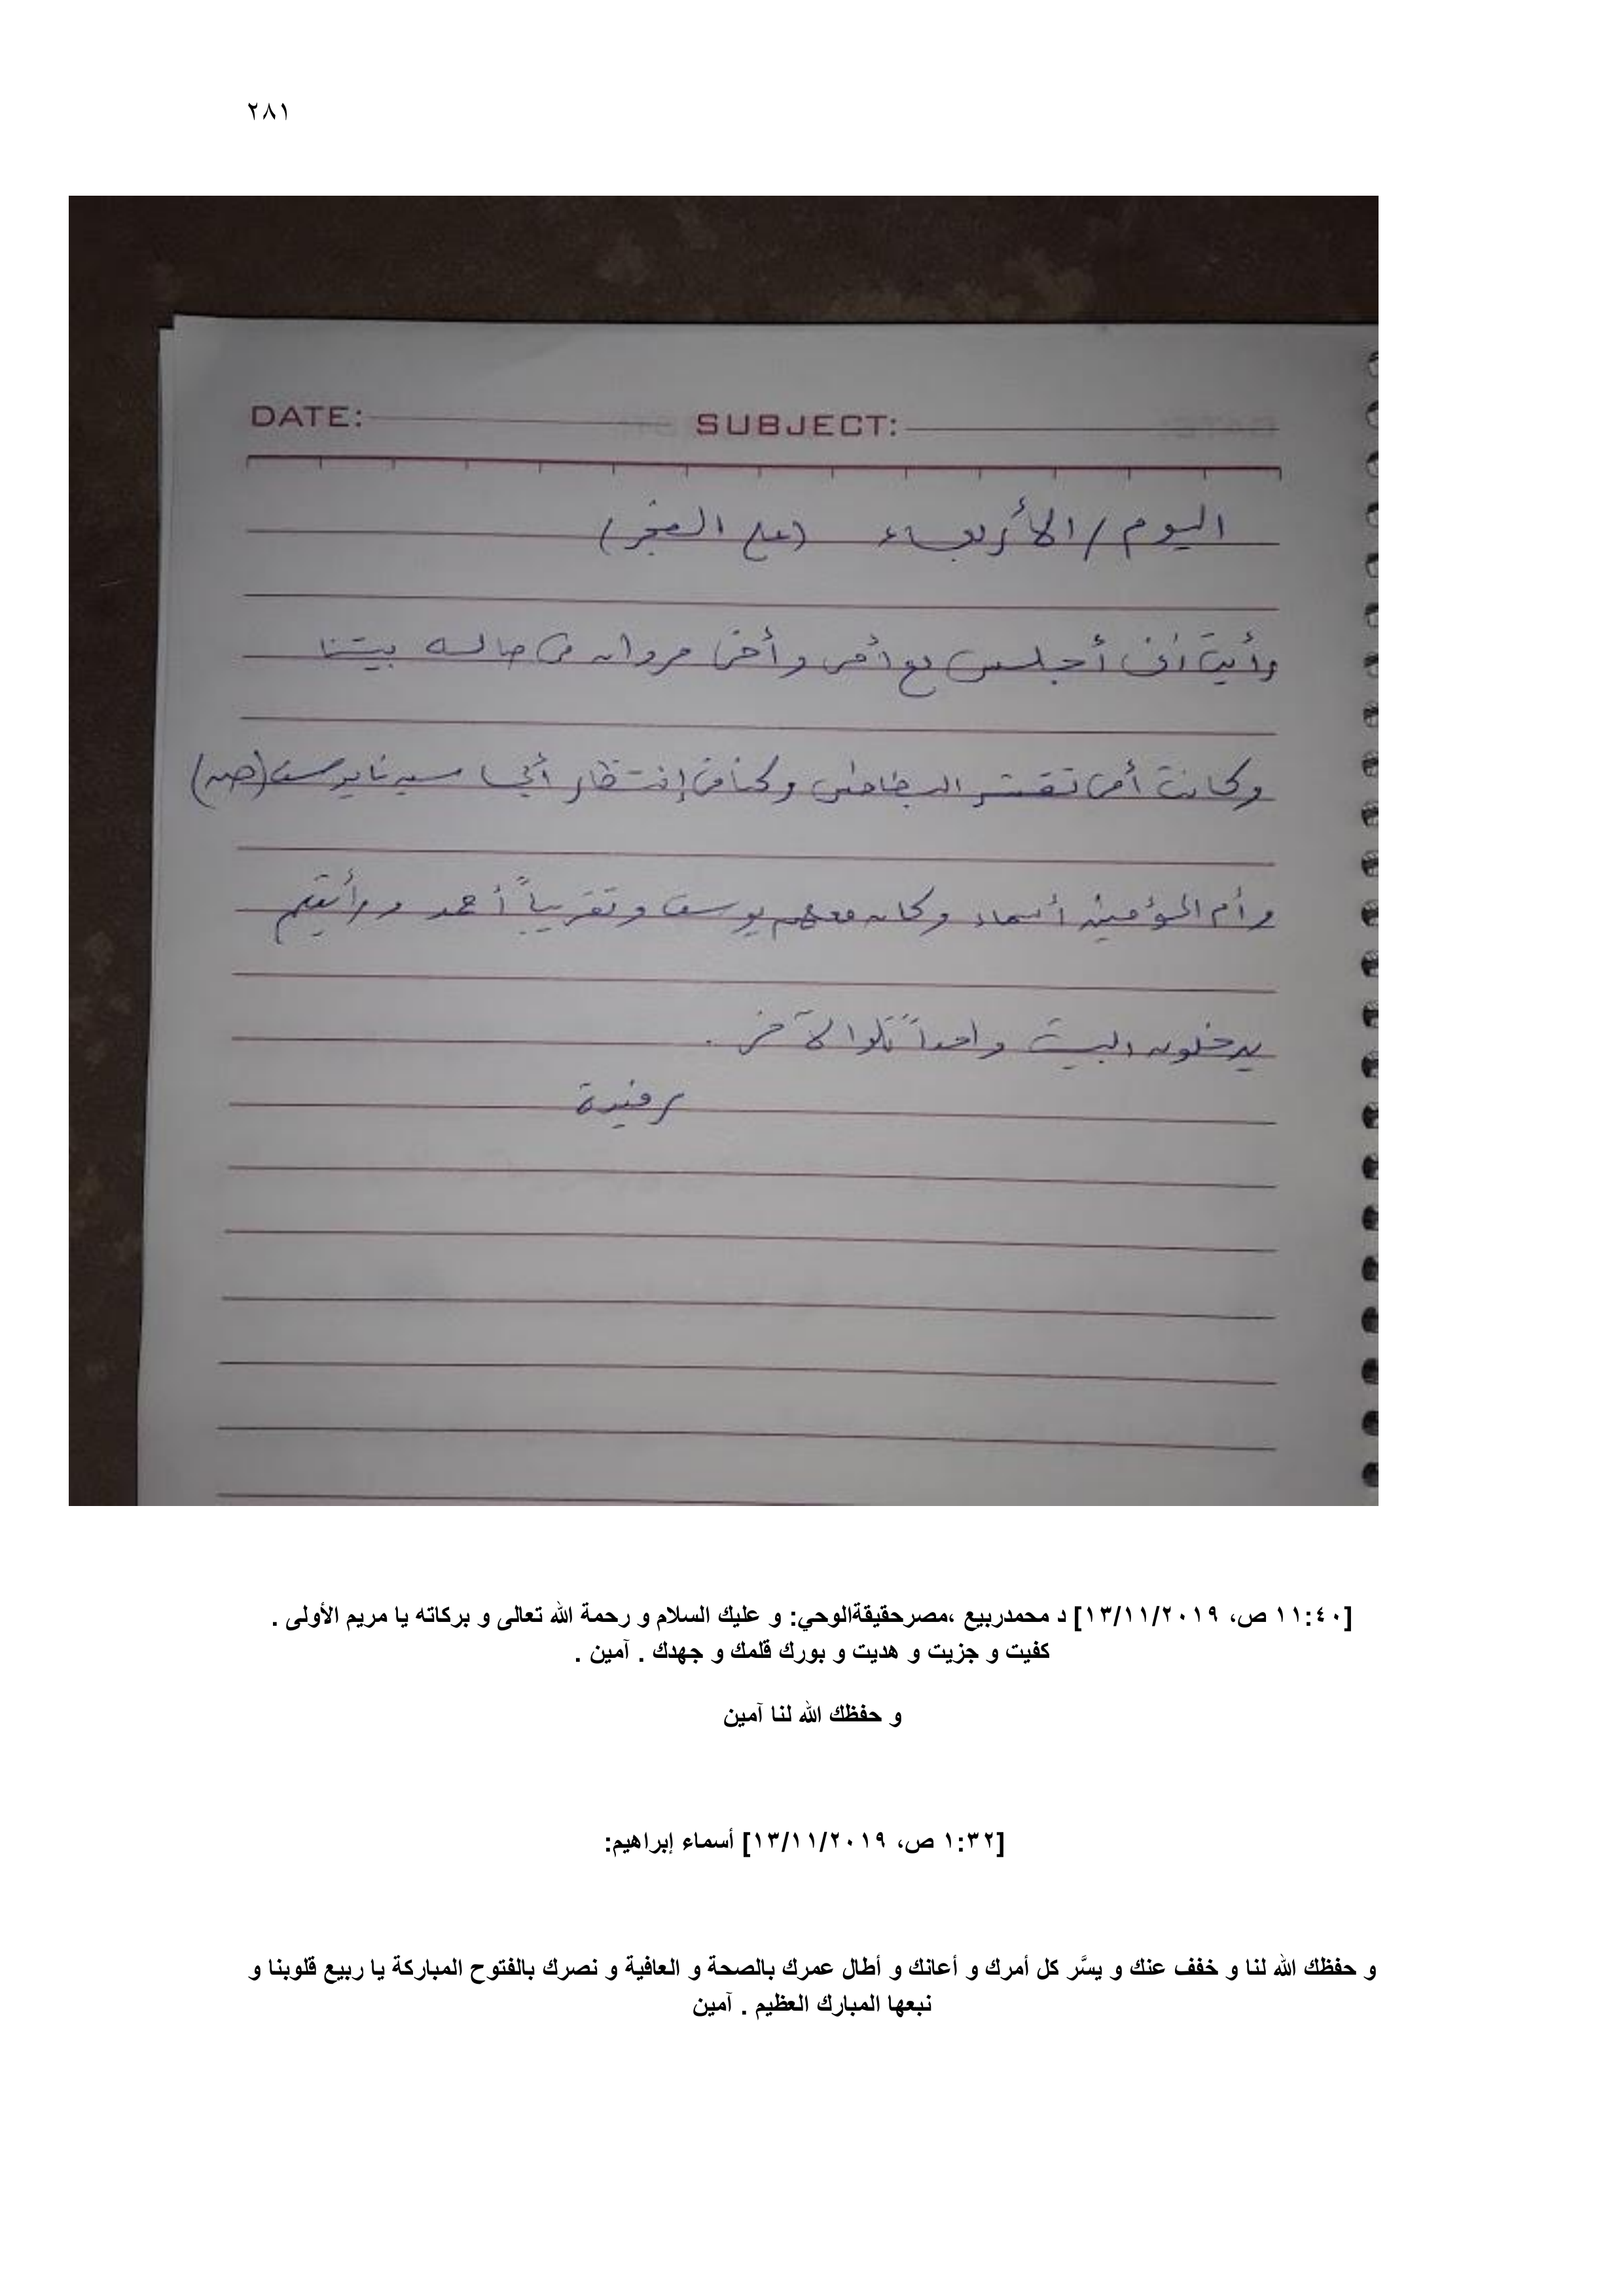 ٢٨١
DATE: SUBJECT:
اليوم / الأربعاء (على الفجر)
رأيت أنى أجلس مع أمى وأخى مروان فى صالة بيتنا
وكانت أمى تقشر البطاطس وكنا فى إنتظار أبي سيدنا يوسف (ص)
وأم المؤمنين أسماء وكان معهم يوسف وتقريباً أحمد ورأيتهم
يدخلون البيت واحداً تلوا الآخر .
رفيدة
[١١:٤٠ ص، ١٣/١١/٢٠١٩] د محمدربيع ،مصرحقيقةالوحي: و عليك السلام و رحمة الله تعالى و بركاته يا مريم الأولى .
كفيت و جزيت و هديت و بورك قلمك و جهدك . آمين .
و حفظك الله لنا آمين
[١:٣٢ ص، ١٣/١١/٢٠١٩] أسماء إبراهيم:
و حفظك الله لنا و خفف عنك و يسَّر كل أمرك و أعانك و أطال عمرك بالصحة و العافية و نصرك بالفتوح المباركة يا ربيع قلوبنا و
نبعها المبارك العظيم . آمين